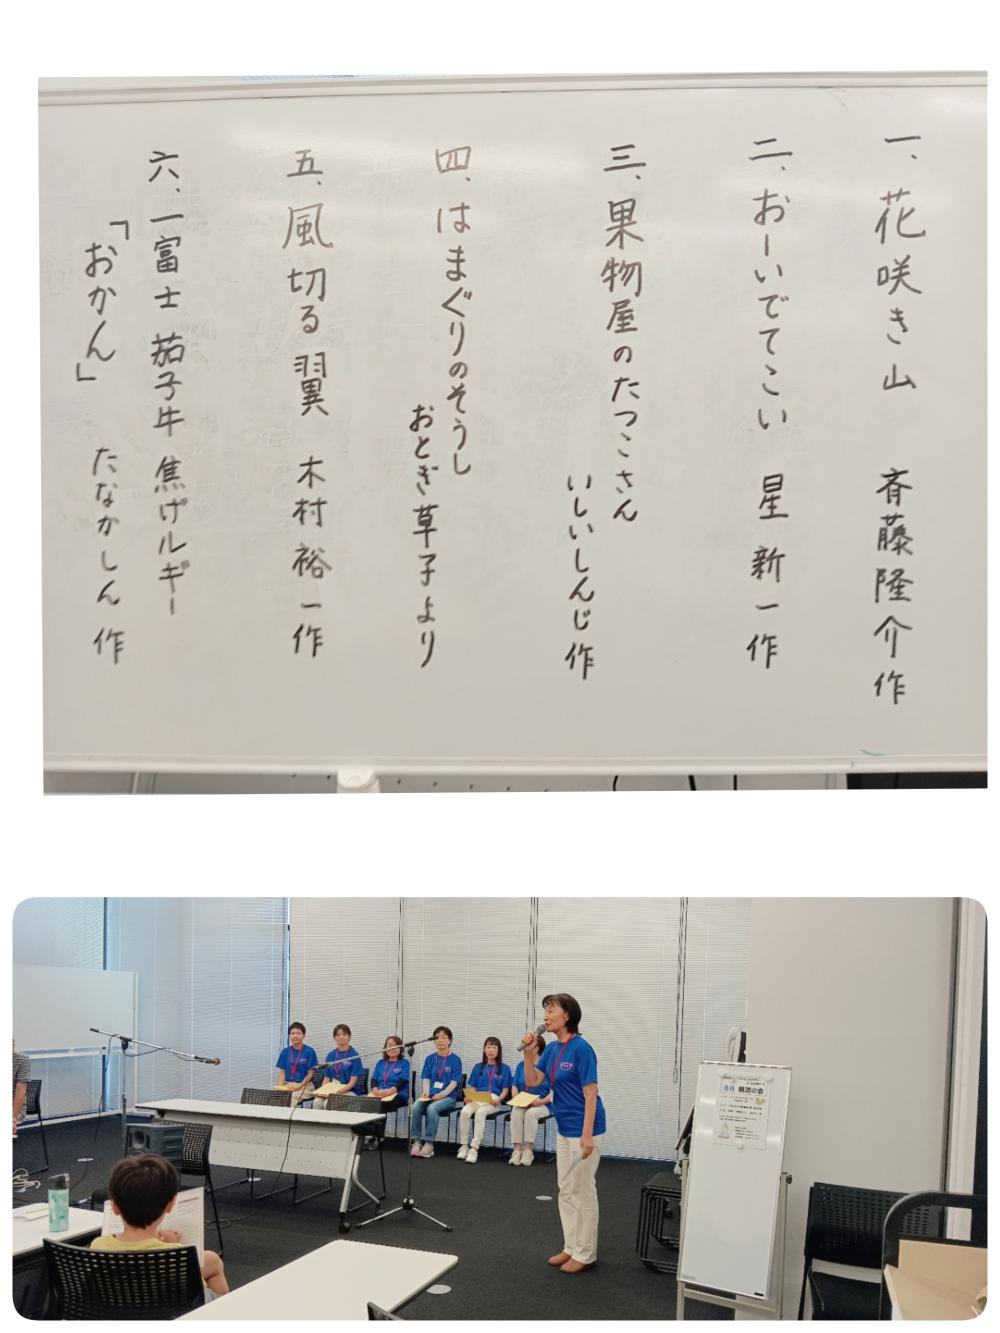 一、花咲き山 斉藤隆介作
二、おーいでてこい 星新一作
三、果物屋のたつこさん
いしいしんじ作
四、はまぐりのそうし
おとぎ草子より
五、風切る翼 木村裕一作
六、一富士茄子牛焦げルギー
「おかん」 たなかしん作
8月 朗読の会